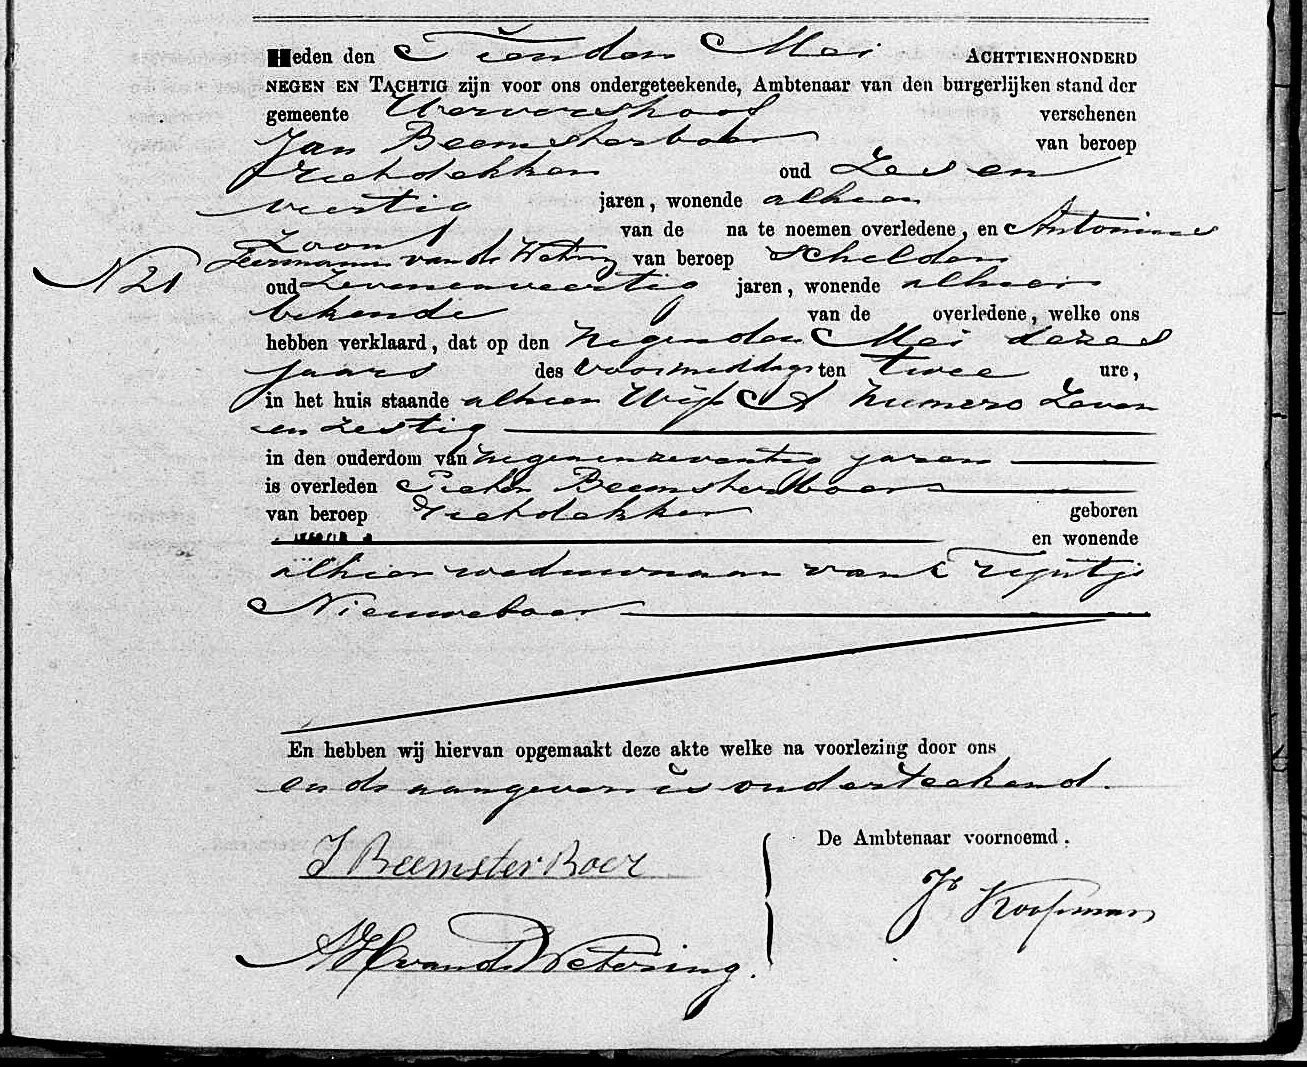 Heden den Tienden Mei ACHTTIENHONDERD
NEGEN EN TACHTIG zijn voor ons ondergeteekende, Ambtenaar van den burgerlijken stand der
gemeente Wervershoof verschenen
Jan Beemsterboer van beroep
rietdekker oud Zes en
veertig jaren, wonende alhier
Zoon van de na te noemen overledene, en Antonius
Hermanus van de Wetering van beroep Schilder
N 21
oud Zevenenveertig jaren, wonende alhier
bekende van de overledene, welke ons
hebben verklaard, dat op den negenden Mei dezes
jaars des voormiddags ten twee ure,
in het huis staande alhier Wijk A numero Zeven
en zestig
in den ouderdom van negenenzeventig jaren
is overleden Pieter Beemsterboer
van beroep Rietdekker geboren
en wonende
alhier weduwnaar van Trijntje
Nieuweboer
En hebben wij hiervan opgemaakt deze akte welke na voorlezing door ons
en de aangevers is onderteekend.
J Beemster Boer
De Ambtenaar voornoemd.
Js Koopman
A H van de Wetering.